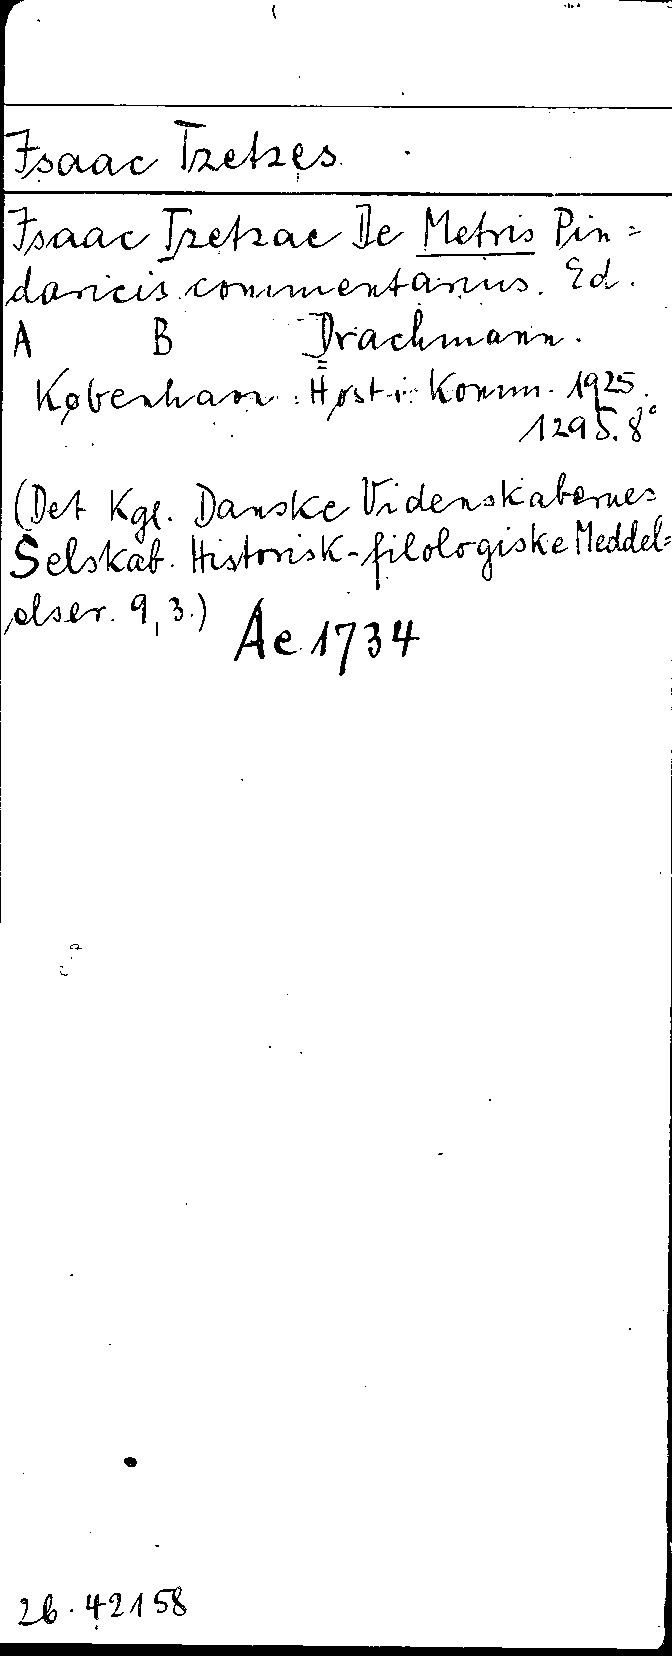 Isaac Tzetzes
Isaac Tzetzae De Metris Pin=
daricis commentarius. Ed.
A B Drachmann.
København: Høst i Komm. 1925.
129 S. 8°
(Det Kgl. Danske Videnskabernes
Selskab. Historisk-filologiske Meddel=
elser. 9,3.)
Ac 1734
26.42158